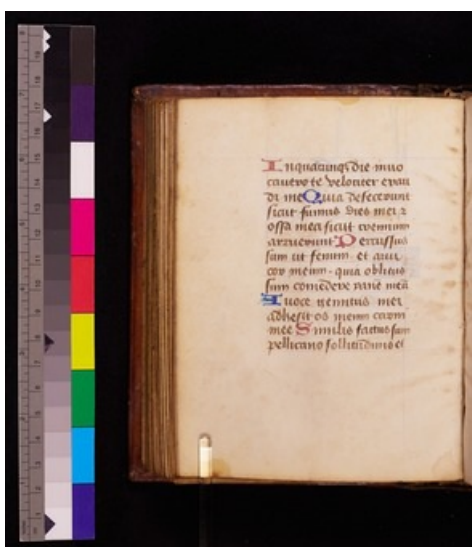 In quacunq; die inuo
cauero te velociter exau
di me Quia defecerunt
sicut fumus dies mei z
ossa mea sicut cremium
aruerunt Percussus
sum ut fenum et aruit
cor meum quia oblitus
sum comedere pane meū
A voce gemitus mei
adhesit os meum carni
mee Similis factus sum
pellicano sollicitudinis et